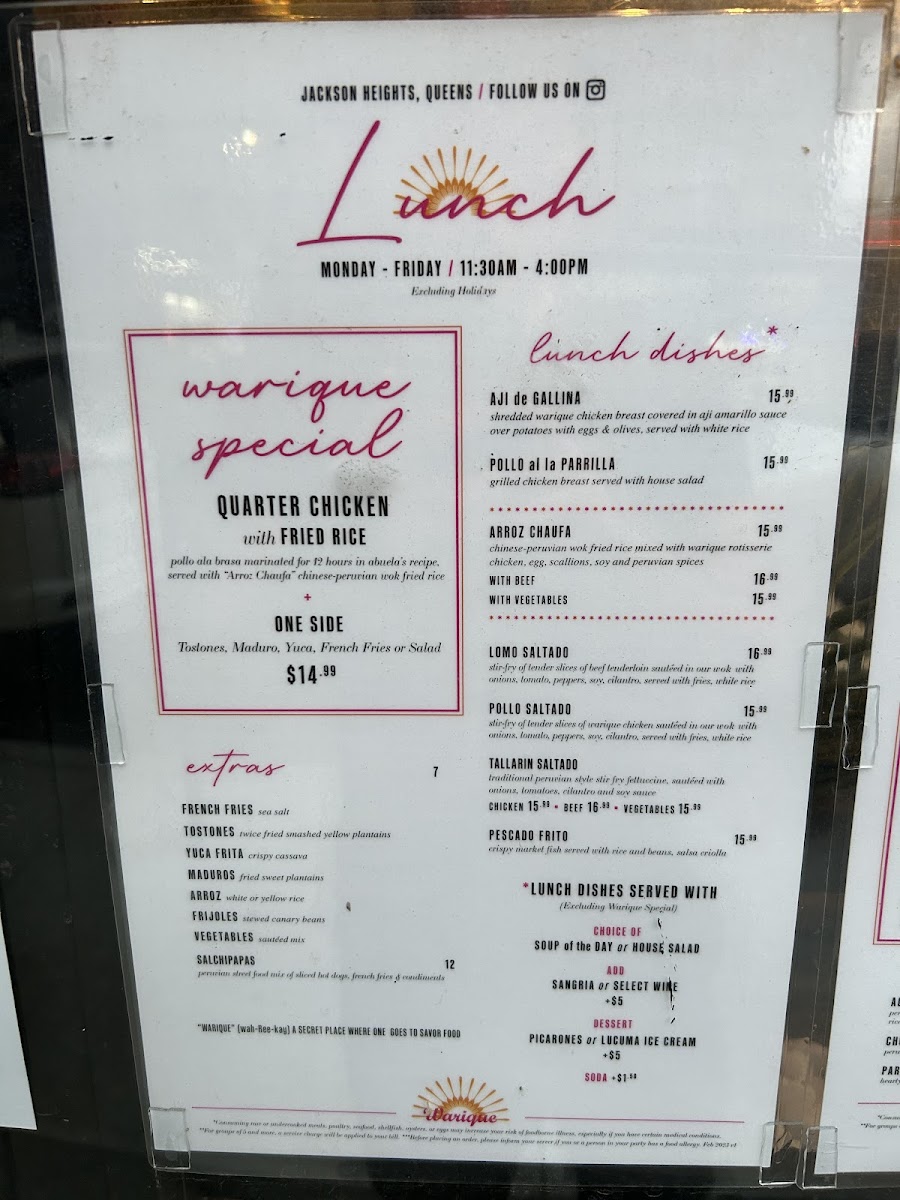 JACKSON HEIGHTS, QUEENS / FOLLOW US ON
Lunch
MONDAY - FRIDAY / 11:30AM - 4:00PM
Excluding Holidays
warique
special
QUARTER CHICKEN
with FRIED RICE
pollo ala brasa marinated for 12 hours in abuela's recipe,
served with "Arroz Chaufa" chinese-peruvian wok fried rice
+
ONE SIDE
Tostones, Maduro, Yuca, French Fries or Salad
$14.99
extras 7
FRENCH FRIES sea salt
TOSTONES twice fried smashed yellow plantains
YUCA FRITA crispy cassava
MADUROS fried sweet plantains
ARROZ white or yellow rice
FRIJOLES stewed canary beans
VEGETABLES sautéed mix
SALCHIPAPAS 12
peruvian street food mix of sliced hot dogs, french fries & condiments
"WARIQUE" (wah-Ree-kay) A SECRET PLACE WHERE ONE GOES TO SAVOR FOOD
lunch dishes*
AJI de GALLINA 15.99
shredded warique chicken breast covered in aji amarillo sauce
over potatoes with eggs & olives, served with white rice
POLLO al la PARRILLA 15.99
grilled chicken breast served with house salad
ARROZ CHAUFA 15.99
chinese-peruvian wok fried rice mixed with warique rotisserie
chicken, egg, scallions, soy and peruvian spices
WITH BEEF 16.99
WITH VEGETABLES 15.99
LOMO SALTADO 16.99
stir-fry of tender slices of beef tenderloin sautéed in our wok with
onions, tomato, peppers, soy, cilantro, served with fries, white rice
POLLO SALTADO 15.99
stir-fry of tender slices of warique chicken sautéed in our wok with
onions, tomato, peppers, soy, cilantro, served with fries, white rice
TALLARIN SALTADO
traditional peruvian style stir fry fettuccine, sautéed with
onions, tomatoes, cilantro and soy sauce
CHICKEN 15.99 • BEEF 16.99 • VEGETABLES 15.99
PESCADO FRITO 15.99
crispy market fish served with rice and beans, salsa criolla
*LUNCH DISHES SERVED WITH
(Excluding Warique Special)
CHOICE OF
SOUP of the DAY or HOUSE SALAD
ADD
SANGRIA or SELECT WINE
+$5
DESSERT
PICARONES or LUCUMA ICE CREAM
+$5
SODA +$1.50
Warique
*Consuming raw or undercooked meats, poultry, seafood, shellfish, oysters, or eggs may increase your risk of foodborne illness, especially if you have certain medical conditions.
**For groups of 5 and more, a service charge will be applied to your bill. ***Before placing an order, please inform your server if you or a person in your party has a food allergy. Feb 2023 v1